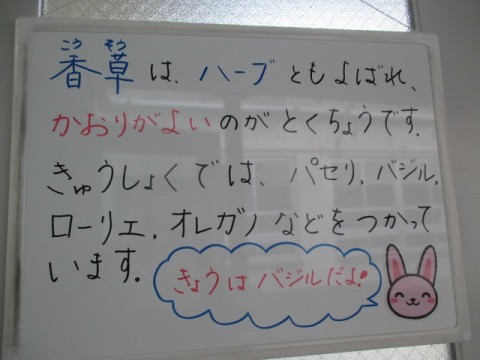 こうそう
香草は、ハーブともよばれ、
かおりがよいのがとくちょうです.
きゅうしょくでは、パセリ,バジル,
ローリエ,オレガノなどをつかって
います.
きょうはバジルだよ!